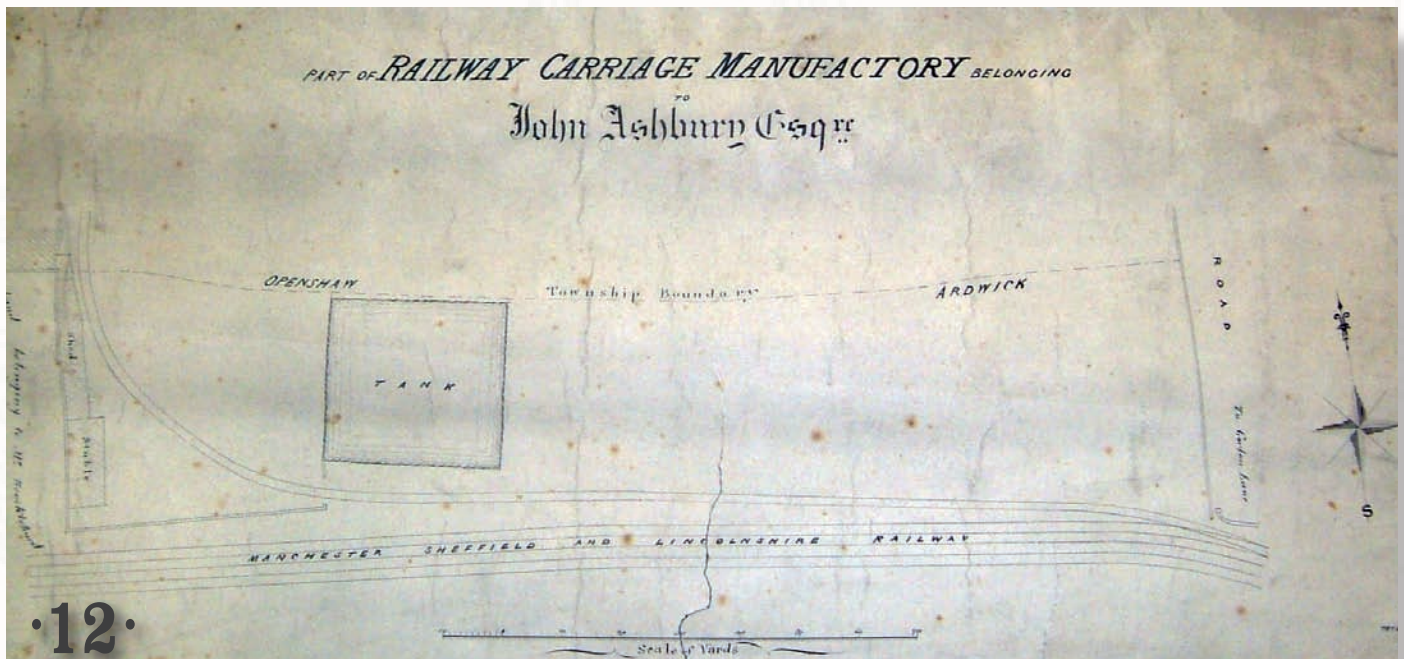 PART OF RAILWAY CARRIAGE MANUFACTORY BELONGING
TO
John Ashbury Esqre
OPENSHAW
Township Boundary
ARDWICK
ROAD
Shed
TANK
Stable
Land belonging to Mr
To Gorton Lane
S
MANCHESTER SHEFFIELD AND LINCOLNSHIRE RAILWAY
Scale of Yards
·12·